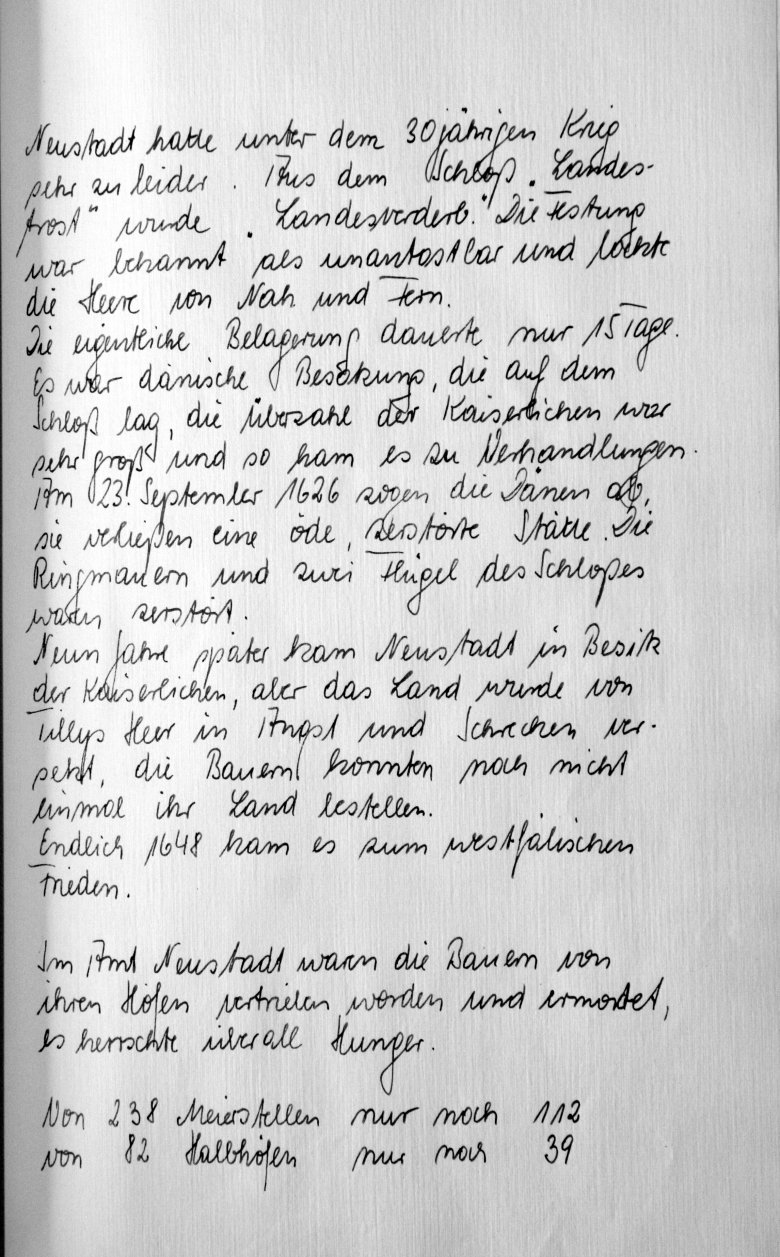 Neustadt hatte unter dem 30jährigen Krieg
sehr zu leiden. Aus dem Schloß „Landes-
trost" wurde „Landesverderb." Die Festung
war bekannt als unantastbar und lockte
die Heere von Nah und Fern.
Die eigentliche Belagerung dauerte nur 15 Tage.
Es war dänische Besatzung, die auf dem
Schloß lag, die Überzahl der Kaiserlichen war
sehr groß und so kam es zu Verhandlungen.
Am 23. September 1626 zogen die Dänen ab,
sie verließen eine öde, zerstörte Stätte. Die
Ringmauern und zwei Flügel des Schloßes
waren zerstört.
Neun Jahre später kam Neustadt in Besitz
der Kaiserlichen, aber das Land wurde von
Tillys Heer in Angst und Schrecken ver-
setzt, die Bauern konnten noch nicht
einmal ihr Land bestellen.
Endlich 1648 kam es zum westfälischen
Frieden.
Im Amt Neustadt waren die Bauern von
ihren Höfen vertrieben worden und ermordet,
es herrschte überall Hunger.
Von 238 Meierstellen nur noch 112
von 82 Halbhöfen nur noch 39